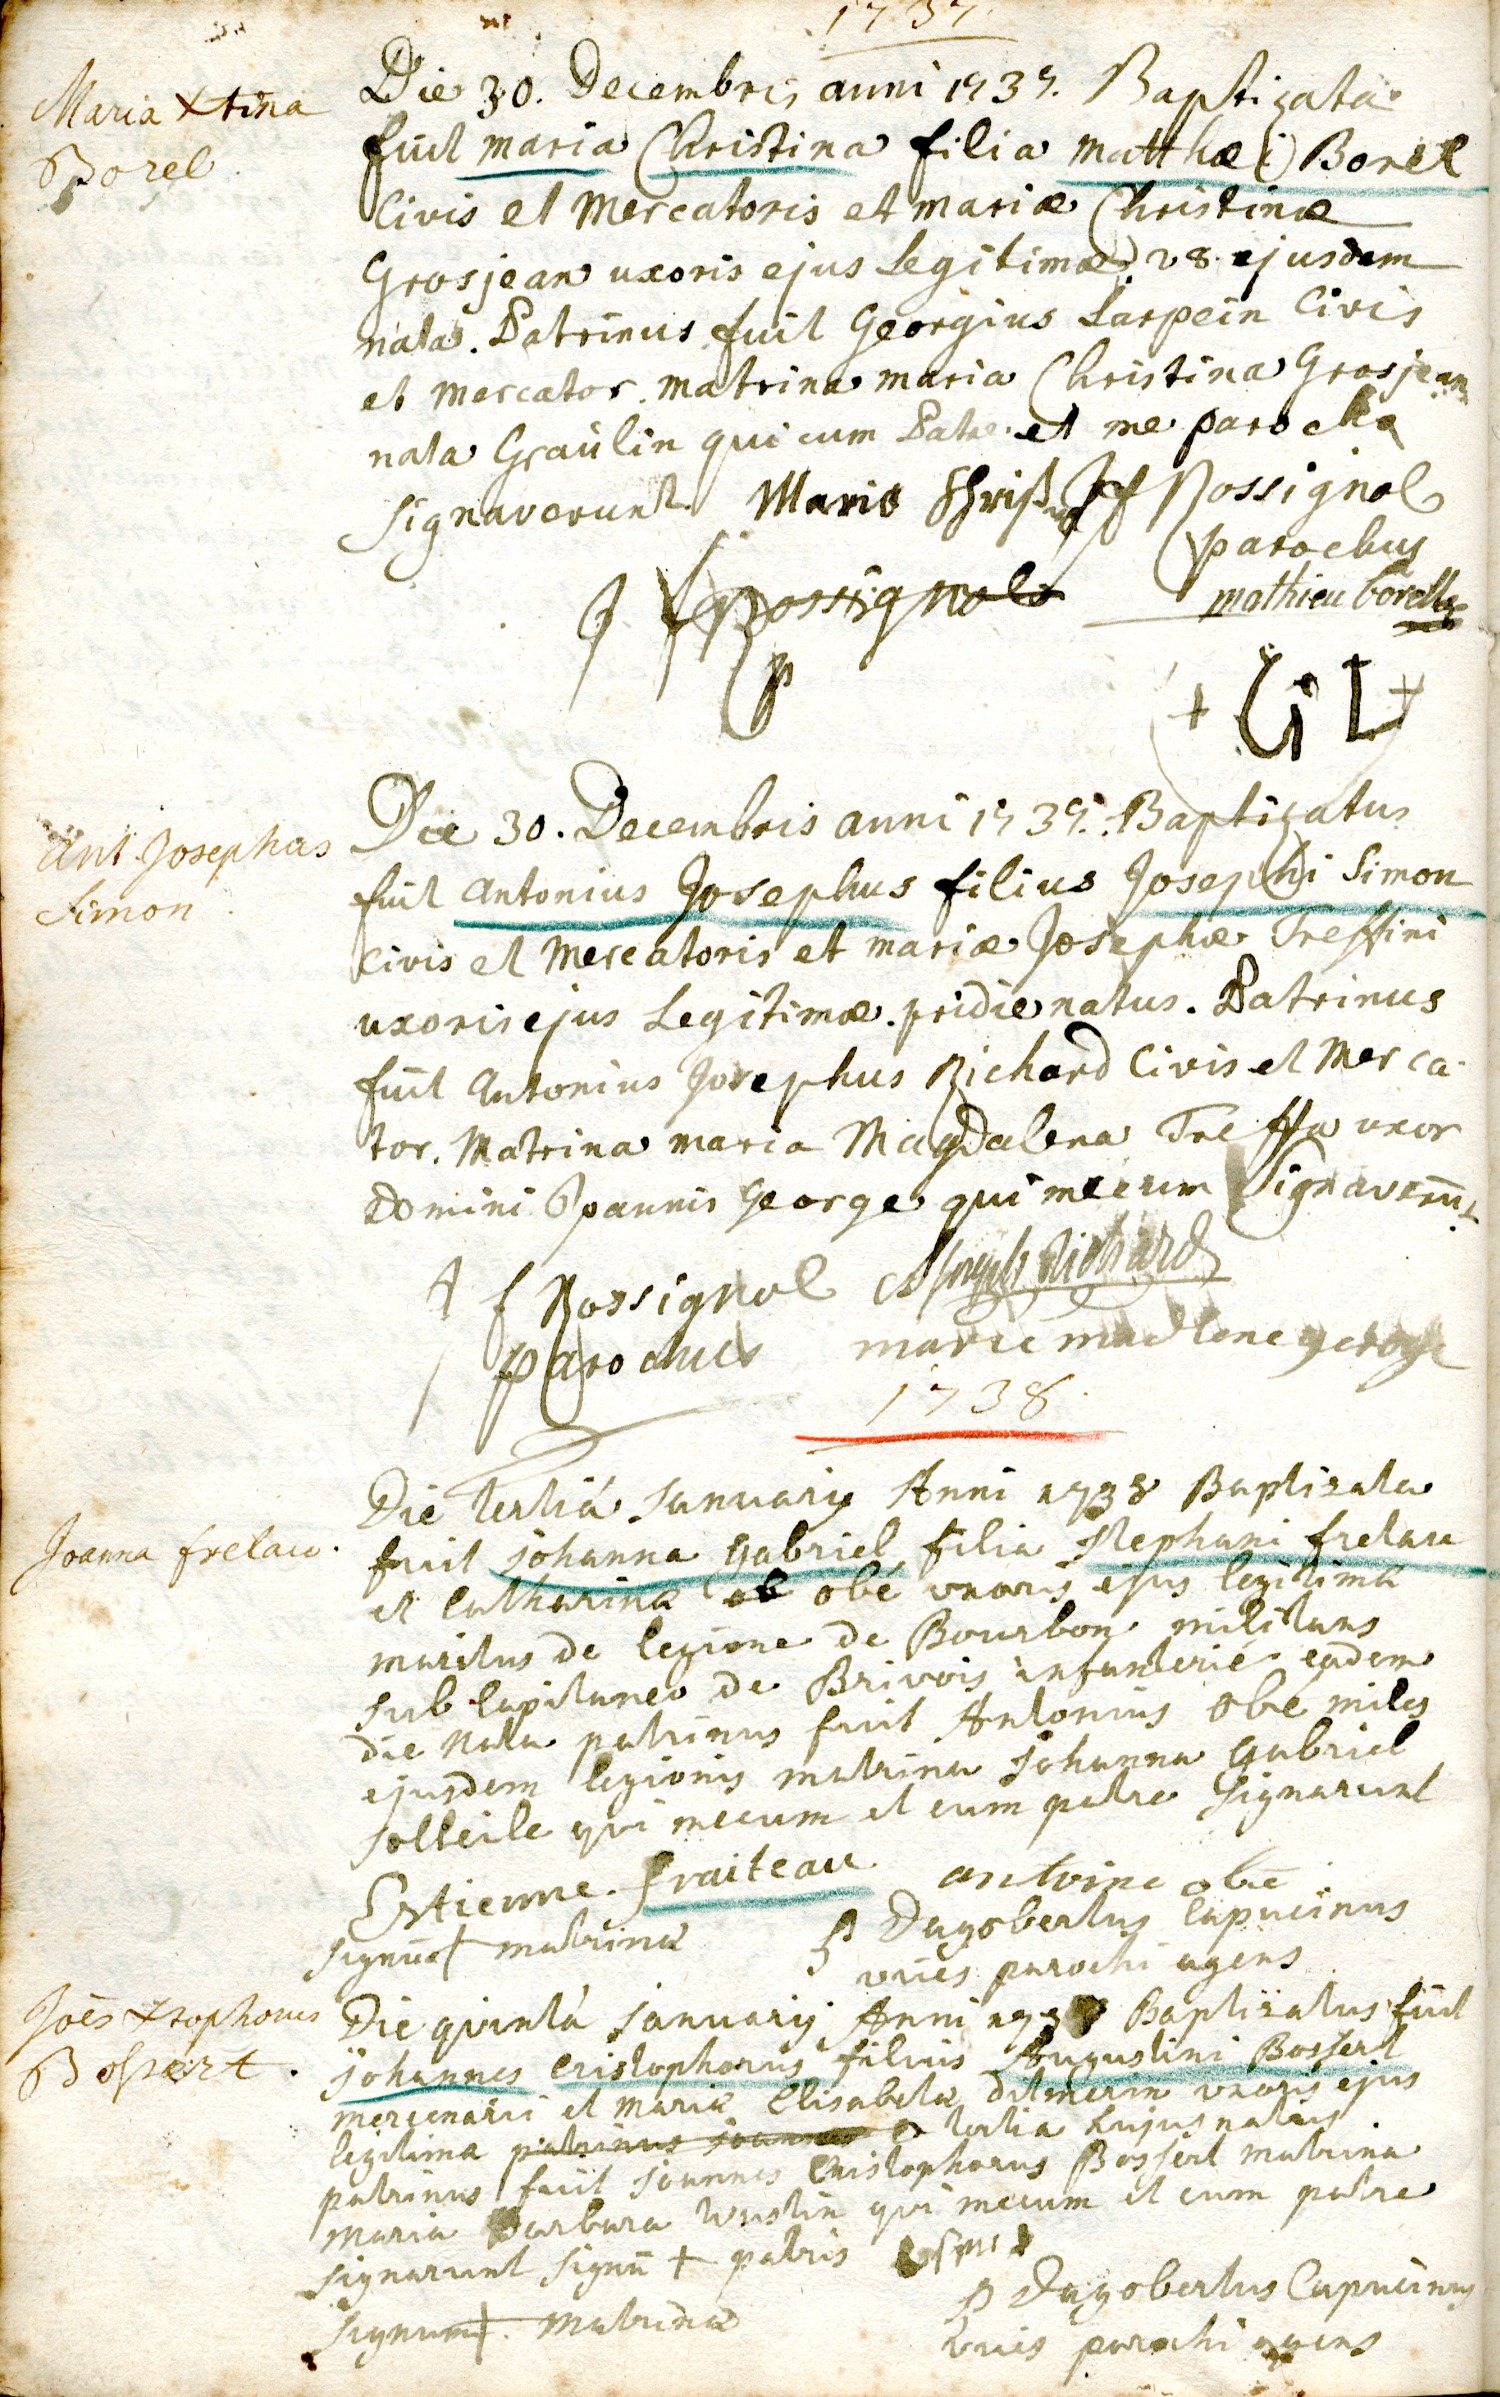 1737.
Maria Xtina
Borel.
Die 30. Decembris anni 1737. Baptizata
fuit maria Christina filia matthæi Borel
Civis et Mercatoris et mariæ Christinæ
Grosjean uxoris ejus Legitimæ, 28. ejusdem
nata. Patrinus fuit Georgius Larpein Civis
et Mercator. Matrina maria Christina Grosjean
nata Graulin qui cum Patre et me parocho
signaverunt. Rossignol
parochus
Rossignol mathieu borelle
+ G L +
Ant. Josephus
Simon.
Die 30. Decembris anni 1737. Baptizatus
fuit Antonius Josephus filius Josephi Simon
Civis et Mercatoris et mariæ Josephæ Treffini
uxoris ejus Legitimæ. pridie natus. Patrinus
fuit Antonius Josephus Richard Civis et Merca-
tor. Matrina maria Magdalena Treffa uxor
Domini Joannis George qui mecum Signaverūt.
J f Rossignol Joseph Richard
parochus marie madlene george
1738.
Joanna frelau.
Die tertiá Januarij Anni 1738 Baptizata
fuit johanna Gabriel filia Stephani frelau
et Catharinæ obé uxoris ejus legitimæ
maritus de legione de Bourbon militans
sub Capitaneo de Brivois infanterié eadem
die Nata patrinus fuit Antonius obé miles
ejusdem legionis matrina Johanna Gabriel
qui mecum et cum patre signarunt
Estienne fraiteau antoine obé
signū + matrinæ P Dagobertus Capucinus
vices parochi agens
Joēs Xtophorus
Bossert.
Die quintá januarij Anni 1738 Baptizatus fuit
johannes Cristophorus filius Augustini Bossert
mercenarii et Mariæ Elisabetæ uxoris ejus
legitima patrinus joannes tertia hujus natus.
patrinus fuit Joannes Cristophorus Bossert matrina
Maria Barbara Wustin qui mecum et cum patre
signarunt signū + patris
P Dagobertus Capucinus
signum + Matrinæ
vices parochi agens